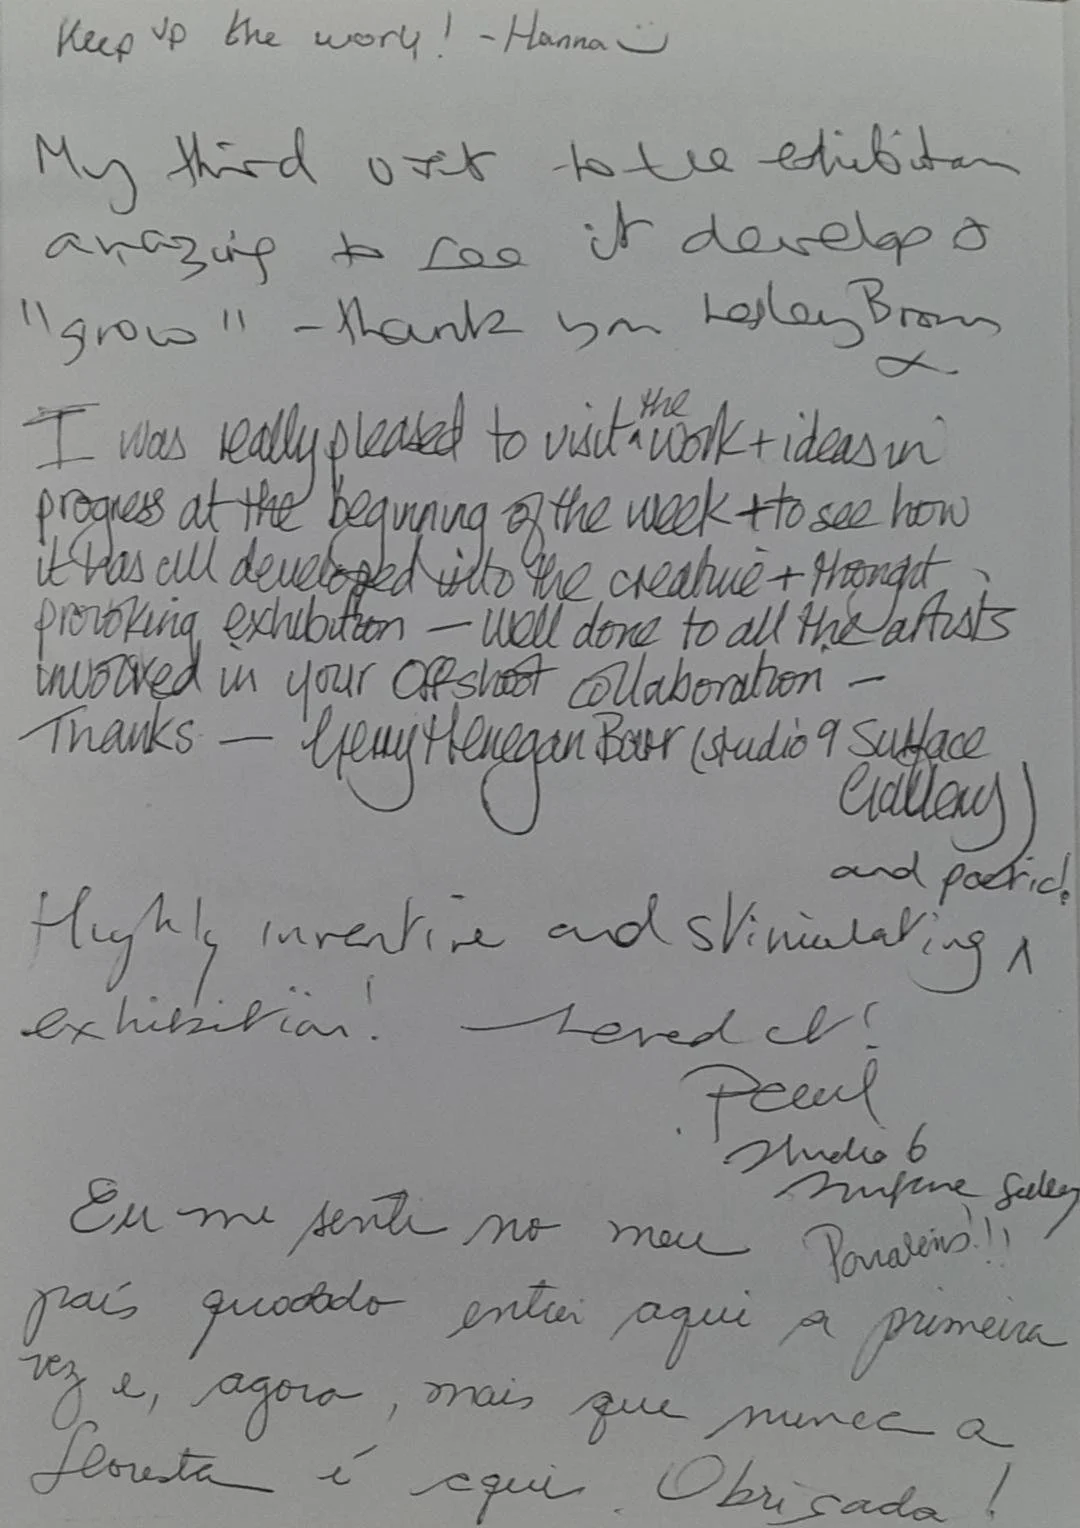 Keep up the work! - Hanna
My third visit to the exhibition
amazing to see it develop &
"grow" - thank you Lesley Brown
x
I was really pleased to visit the work + ideas in
progress at the beginning of the week + to see how
it has all developed into the creative + thought
provoking exhibition — well done to all the artists
involved in your offshoot collaboration —
Thanks — Gerry Henegan Barr (studio 9 Surface
Gallery)
and poetic!
Highly inventive and stimulating ^
exhibition! Loved it!
Paul
Studio 6
Surface Gallery
Eu me senti no meu
Parabéns!!!
país quando entrei aqui a primeira
vez e, agora, mais que nunca a
floresta é aqui. Obrigada!